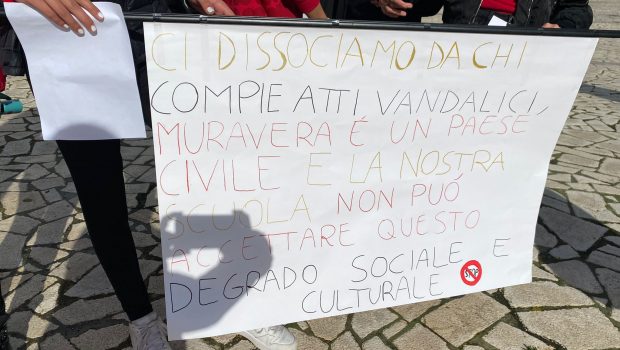 CI DISSOCIAMO DA CHI
COMPIE ATTI VANDALICI,
MURAVERA É UN PAESE
CIVILE E LA NOSTRA
SCUOLA NON PUÓ
ACCETTARE QUESTO
DEGRADO SOCIALE E
CULTURALE